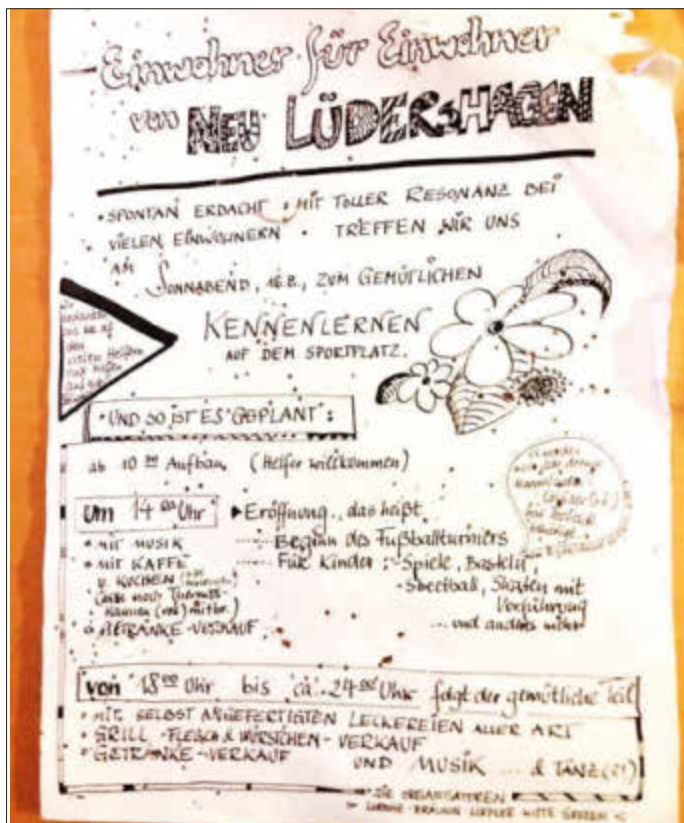 Einwohner für Einwohner
von NEU LÜDERSHAGEN
• SPONTAN ERDACHT • MIT TOLLER RESONANZ BEI
VIELEN EINWOHNERN • TREFFEN WIR UNS
AM SONNABEND, 16.8., ZUM GEMÜTLICHEN
KENNENLERNEN
AUF DEM SPORTPLATZ.
vielen Helfern
• UND SO IST ES GEPLANT:
ab 10 00 Aufbau (Helfer willkommen)
Um 14 00 Uhr ▶ Eröffnung, das heißt
• MIT MUSIK ..... Beginn des Fußballturniers
• MIT KAFFE ..... Für Kinder: - Spiele, Basteln,
U. KUCHEN
- Streetball, Skaten mit
Vorführung
• GETRÄNKE-VERKAUF ... und anders mehr
von 18 00 Uhr bis ca. 24 00 Uhr folgt der gemütliche Teil
• MIT SELBST ANGEFERTIGTEN LECKEREIEN ALLER ART
• GRILL-FLEISCH & WÜRSTCHEN-VERKAUF
• GETRÄNKE-VERKAUF UND MUSIK ... & TANZ (21)
DIE ORGANISATOREN